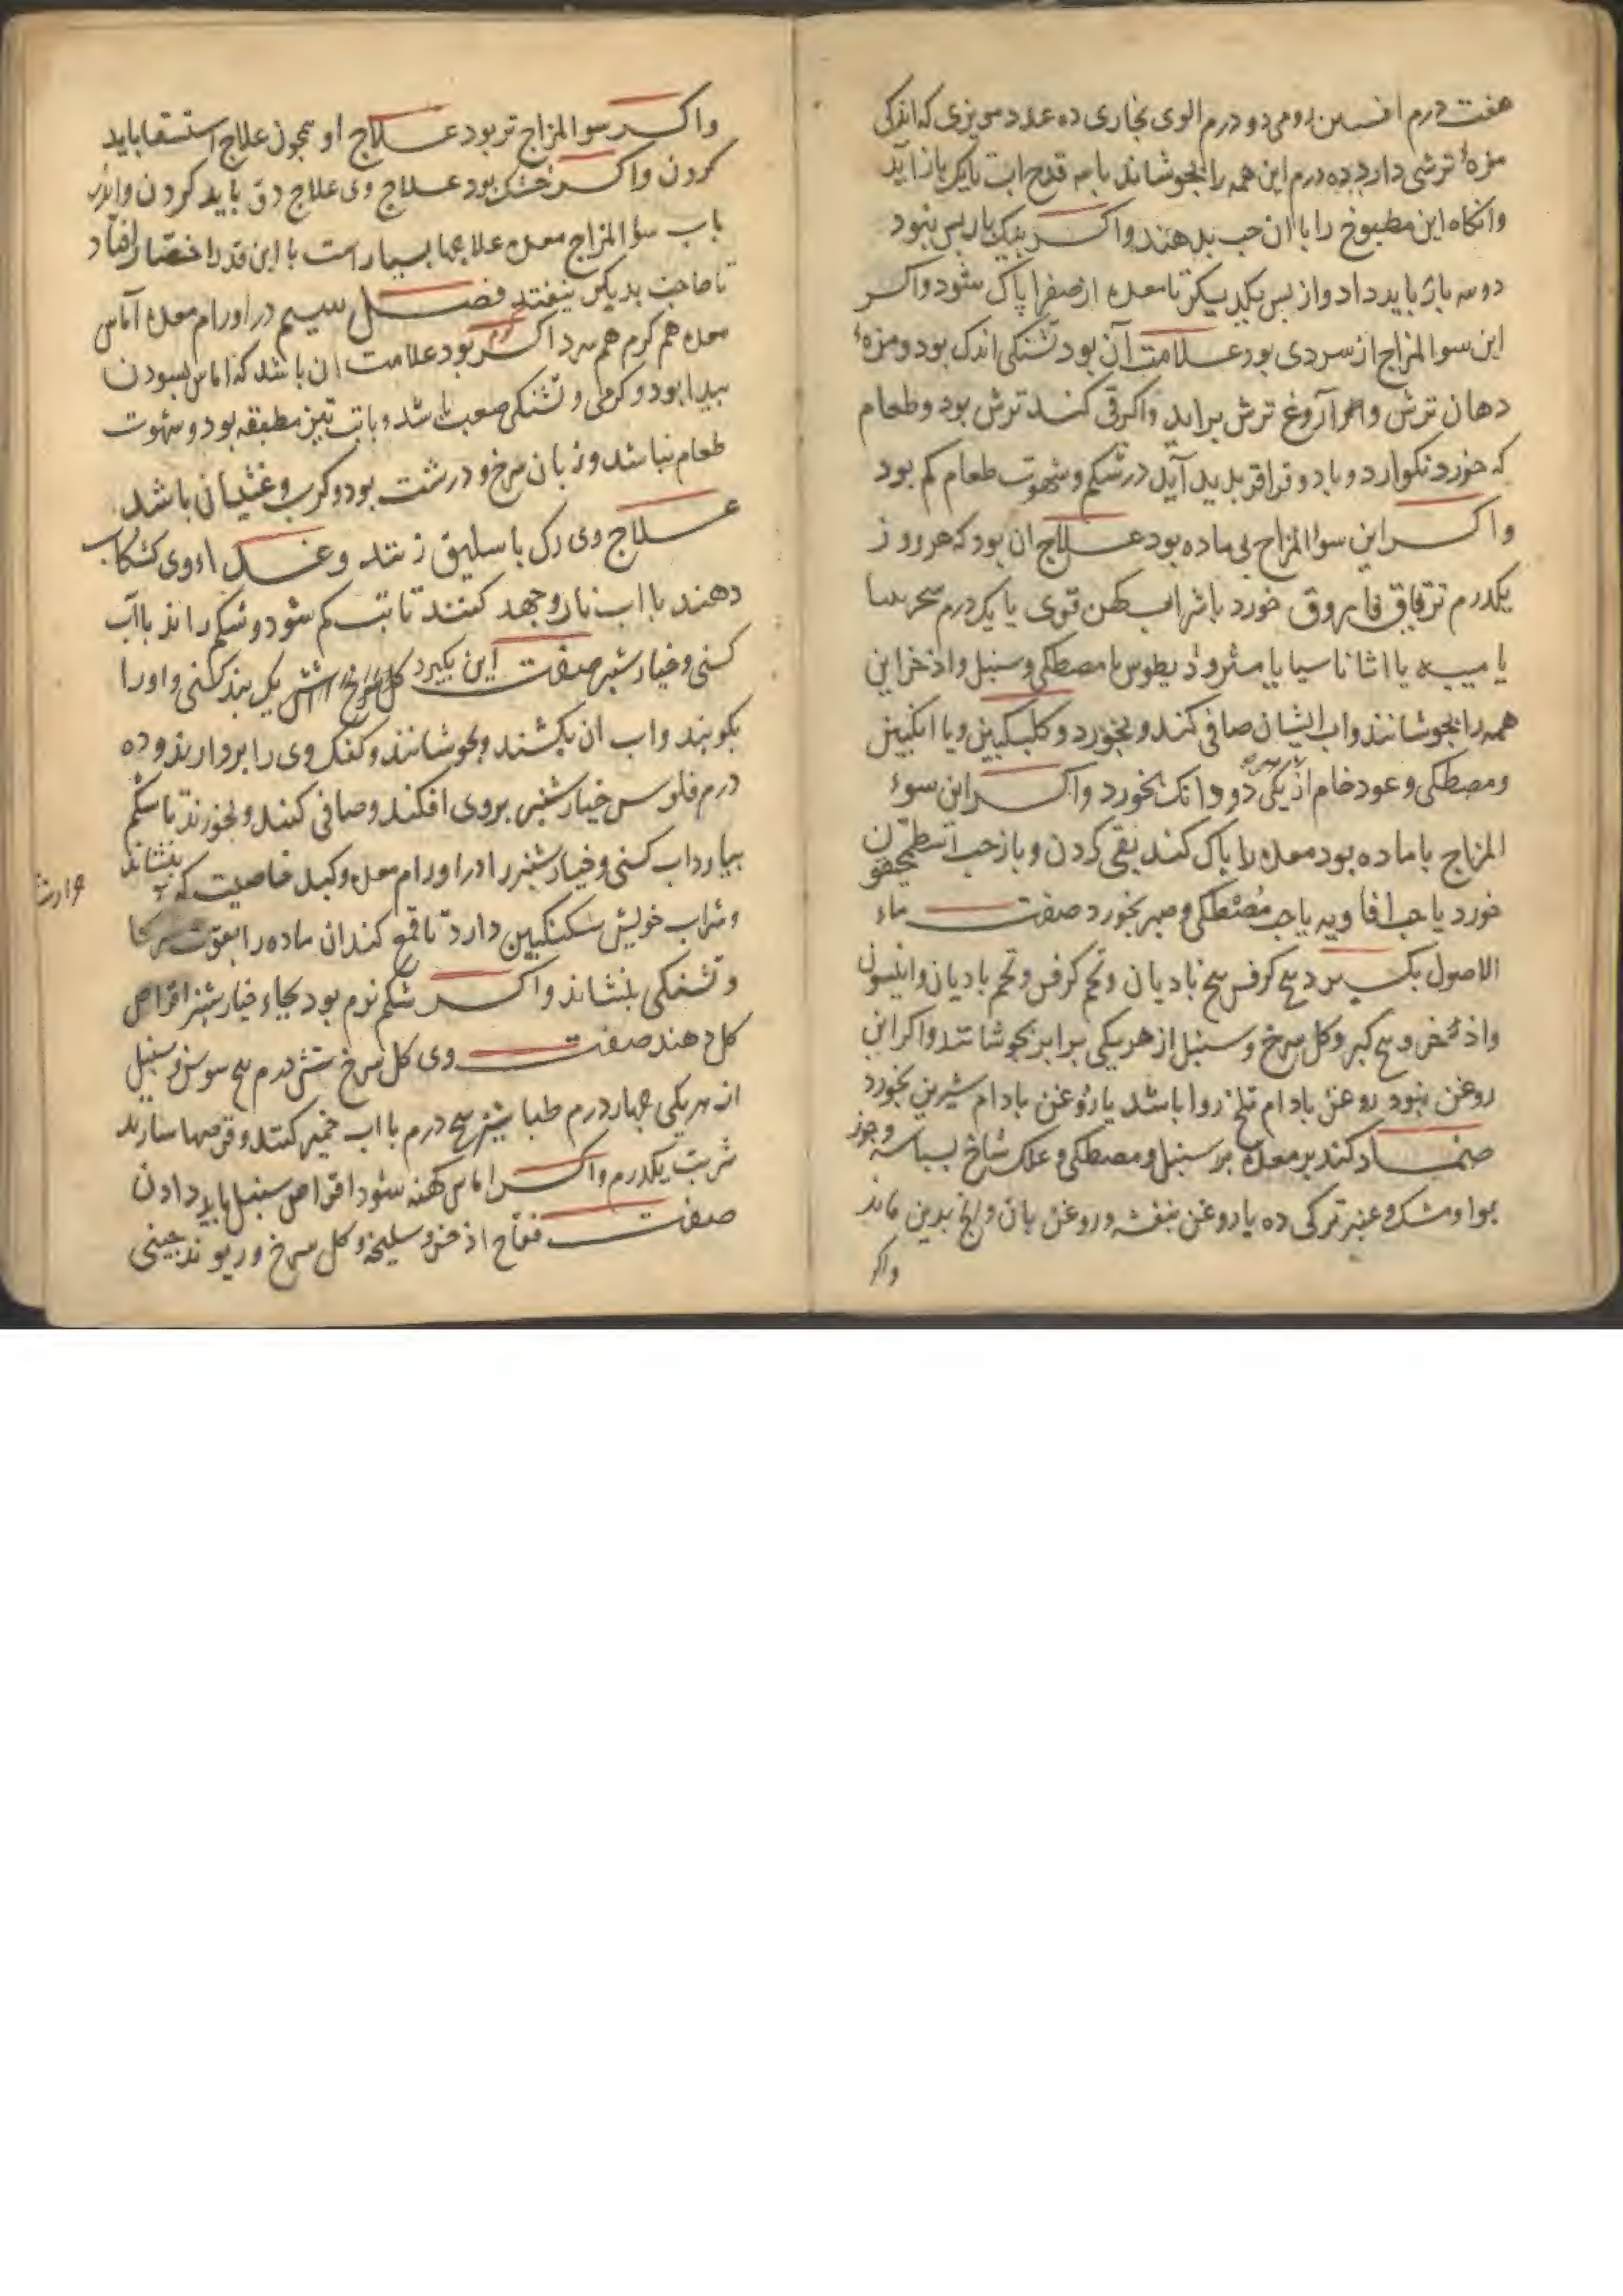 هفت درم افسنتین رومی دو درم الوی بخاری ده عدد مویزی که اندکی
مزهٔ ترشی دارد ده درم این همه را بجوشاند با سه قدح اب تا یک باز آید
وانکاه این مطبوخ را با ان حب بدهند واکر بیک بار بس نبود
دو سه بار باید داد و از پس یکدیگر تا معده از صفرا پاک شود واکر
این سوالمزاج از سردی بود علامت آن بود تشنکی اندک بود ومزهٔ
دهان ترش و آروغ ترش براید واکر قی کند ترش بود وطعام
که خورد نکوارد و باد و قراقر بدید آید در شکم و شهوت طعام کم بود
واکر این سؤالمزاج بی ماده بود علاج ان بود که هر روز
یکدرم تریاق فاروق خورد با شراب کهن قوی یا یکدرم سجرینیا
یا میبه یا اثاناسیا یا مثرودیطوس با مصطکی وسنبل واذخر این
همه را بجوشانند واب ایشان صافی کند وبخورد و کلنکبین ویا انکبین
ومصطکی وعود خام از یکی دو دانک بخورد واکر این سوء
المزاج با ماده بود معده را پاک کند بقی کردن و باز حب اسطمحیقون
خورد یا حب افاویه یا حب مصطکی وصبر بخورد صفت ماء
الاصول بکیرد بیخ کرفس بیخ بادیان وتخم کرفس وتخم بادیان وانیسون
واذخر وبیخ کبر وکل سرخ وسنبل از هر یکی برابر بجوشانند واکر این
روغن نبود روغن بادام تلخ روا باشد یا روغن بادام شیرین بخورد
ضماد کند بر معده بر سنبل ومصطکی وعلک شاخ بسباسه وجوز
بوا ومشک وعنبر ترکی ده یا روغن بنفشه وروغن بان وانج بدین ماند
واکر
واکر سوالمزاج تر بود علاج او همچون علاج استسقا باید
کردن واکر خشک بود علاج وی علاج دق باید کردن واندر
باب سؤالمزاج معده علاجها بسیار است با این قدر اختصار افتاد
تا صاحب بدیکر نیفتد فصل سیم در اورام معده آماس
معده هم کرم هم سرد اکر کرم بود علامت ان باشد که اماس بسودن
پیدا بود و کرمی و تشنکی صعب باشد وبا تب تیز مطبقه بود وشهوت
طعام نباشد وزبان سرخ و درشت بود وکرب وغثیان باشد
علاج وی رک باسلیق زنند وغذاء وی کشکاب
دهند با اب نار وجهد کنند تا تب کم شود وشکم راند باآب
کسنی وخیارشنبر صفت این بکیرد کل سرخ شش یک بند کسنی واورا
بکوبند واب ان بکشند وبجوشانند وکفک وی را بردارند وده
درم فلوس خیارشنبر بروی افکند وصافی کنند وبخورند تا شکم
بیارد اب کسنی وخیارشنبر را در اورام معده وکبد خاصیت که
بنشاند
حرارت
وشراب خویش سکنکبین دارد تا قمع کند ان ماده را بقوت
وتشنکی بنشاند واکر شکم نرم بود بجاء خیارشنبر اقراص
کل دهند صفت وی کل سرخ شش درم بیخ سوسن وسنبل
از هر یکی چهار درم طباشیر پنج درم با اب خمیر کنند وقرصها سازند
شربت یکدرم واکر اماس کهنه شود اقراص سنبل باید دادن
صفت فقاح اذخر وسلیخه وکل سرخ وریوند چینی